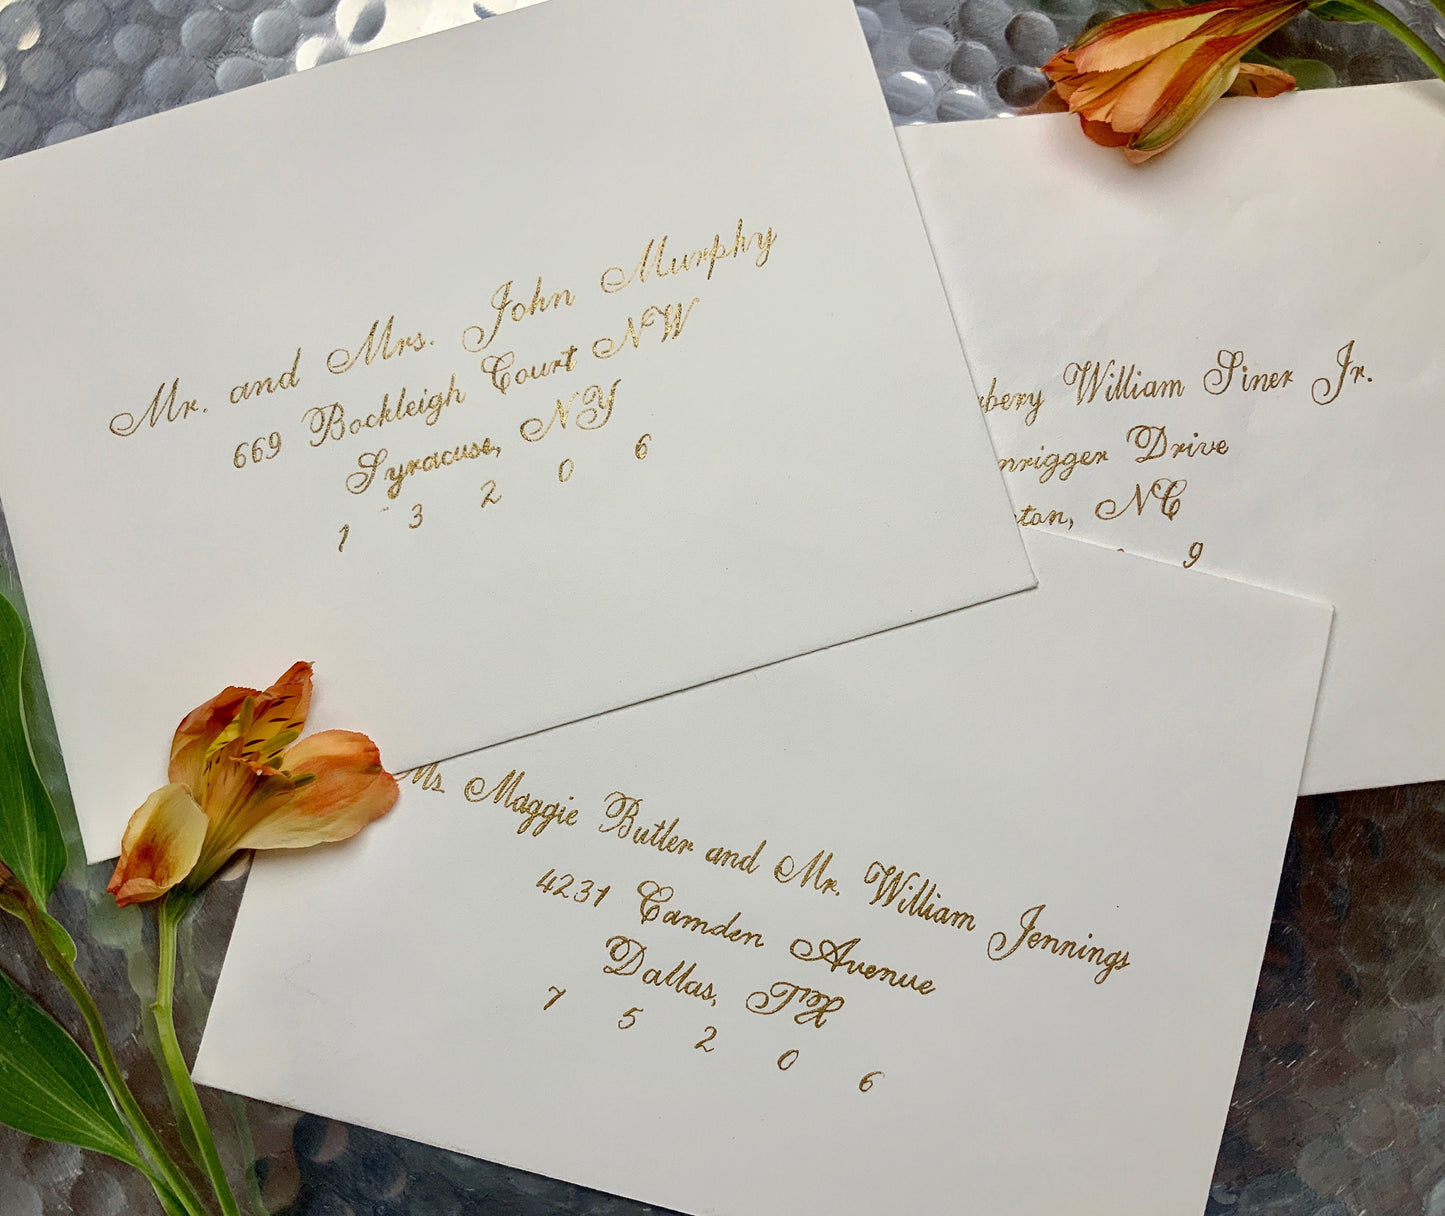 Mr. and Mrs. John Murphy
669 Bockleigh Court NW
Syracuse, NY
1 3 2 0 6
William Siner Jr.
Drive
NC
9
Ms. Maggie Butler and Mr. William Jennings
4231 Camden Avenue
Dallas, TX
7 5 2 0 6